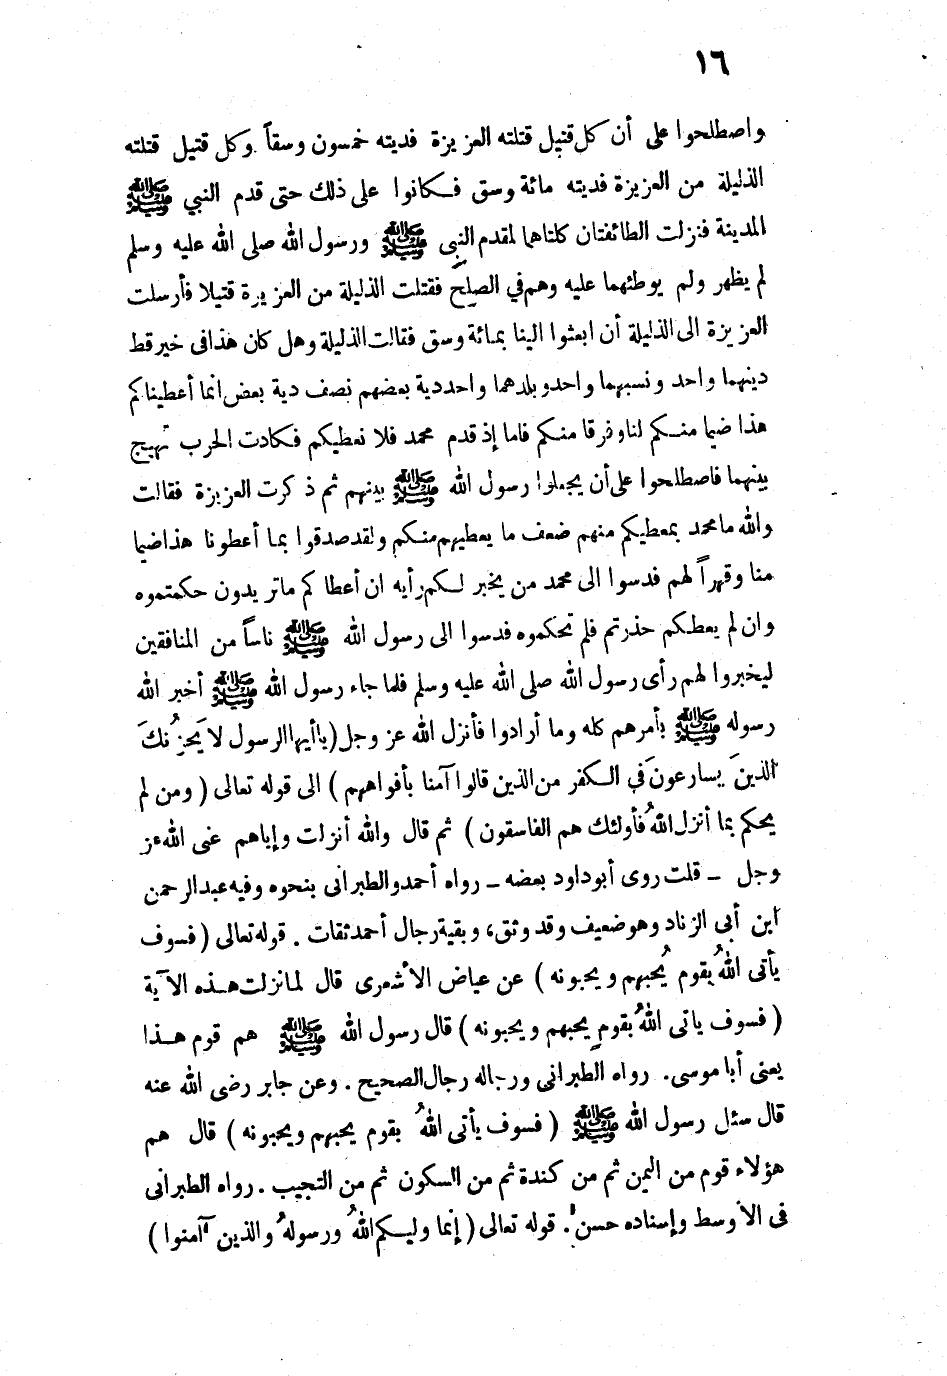 ١٦
واصطلحوا على أن كل قتيل قتلته العزيزة فديته خمسون وسقاً وكل قتيل قتلته
الذليلة من العزيزة فديته مائة وسق فكانوا على ذلك حتى قدم النبي ﷺ
المدينة فنزلت الطائفتان كلتاهما لمقدم النبى ﷺ ورسول الله صلى الله عليه وسلم
لم يظهر ولم يوطئهما عليه وهم في الصلح فقتلت الذليلة من العزيزة قتيلا فأرسلت
العزيزة الى الذليلة أن ابعثوا الينا بمائة وسق فقالت الذليلة وهل كان هذا فى خير قط
دينهما واحد ونسبهما واحد وبلدهما واحد دية بعضهم نصف دية بعض انما أعطيناكم
هذا ضيما منكم لنا وفرقا منكم فاما إذ قدم محمد فلا نعطيكم فكادت الحرب تهيج
بينهما فاصطلحوا على أن يجعلوا رسول الله ﷺ بينهم ثم ذكرت العزيزة فقالت
والله ما محمد بمعطيكم منهم ضعف ما يعطيهم منكم ولقد صدقوا بما أعطونا هذا ضيما
منا وقهراً لهم فدسوا الى محمد من يخبر لكم رأيه ان أعطاكم ما تريدون حكمتموه
وان لم يعطكم حذرتم فلم تحكموه فدسوا الى رسول الله ﷺ ناساً من المنافقين
ليخبروا لهم رأى رسول الله صلى الله عليه وسلم فلما جاء رسول الله ﷺ أخبر الله
رسوله ﷺ بأمرهم كله وما أرادوا فأنزل الله عز وجل (يا أيها الرسول لا يَحزُنكَ
الذينَ يسارعونَ في الكفر من الذين قالوا آمنا بأفواههم ) الى قوله تعالى ( ومن لم
يحكم بما أنزل اللهُ فأولئك هم الفاسقون ) ثم قال والله أنزلت وإياهم عنى الله عز
وجل – قلت روى أبو داود بعضه – رواه أحمد والطبرانى بنحوه وفيه عبد الرحمن
ابن أبى الزناد وهو ضعيف وقد وثق، وبقية رجال أحمد ثقات . قوله تعالى ( فسوف
يأتى اللهُ بقوم يُحبهم ويحبونه ) عن عياض الأشعرى قال لما نزلت هذه الآية
( فسوف ياتى اللهُ بقومٍ يحبهم ويحبونه ) قال رسول الله ﷺ هم قوم هذا
يعنى أبا موسى. رواه الطبرانى ورجاله رجال الصحيح . وعن جابر رضى الله عنه
قال سئل رسول الله ﷺ ( فسوف يأتى اللهُ بقوم يحبهم ويحبونه ) قال هم
هؤلاء قوم من اليمن ثم من كندة ثم من السكون ثم من التجيب . رواه الطبرانى
فى الأوسط وإسناده حسن . قوله تعالى ( إنما وليكم اللهُ ورسولهُ والذين آمنوا )